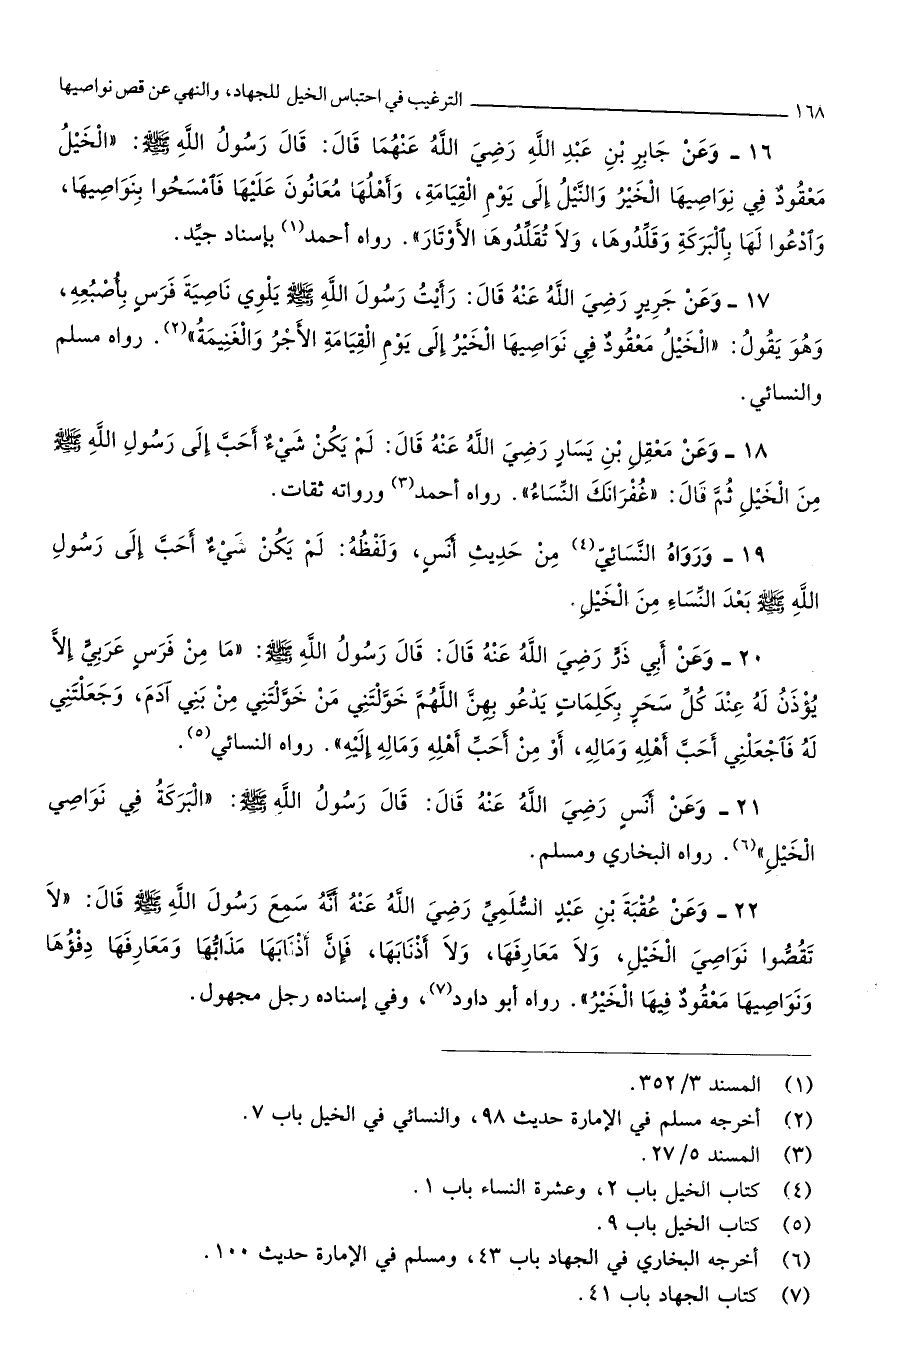 ١٦٨ ـــــــــــــــــ الترغيب في احتباس الخيل للجهاد، والنهي عن قص نواصيها
١٦ ـ وَعَنْ جَابِرِ بْنِ عَبْدِ اللَّهِ رَضِيَ اللَّهُ عَنْهُمَا قَالَ: قَالَ رَسُولُ اللَّهِ ﷺ: «الْخَيْلُ
مَعْقُودٌ فِي نِوَاصِيهَا الْخَيْرُ وَالنَّيْلُ إِلَى يَوْمِ الْقِيَامَةِ، وَأَهْلُهَا مُعَانُونَ عَلَيْهَا فَٱمْسَحُوا بِنَوَاصِيهَا،
وَٱدْعُوا لَهَا بِٱلْبَرَكَةِ وَقَلِّدُوهَا، وَلاَ تُقَلِّدُوهَا الأَوْتَارَ». رواه أحمد(١) بإسناد جيِّد.
١٧ ـ وَعَنْ جَرِيرٍ رَضِيَ اللَّهُ عَنْهُ قَالَ: رَأَيْتُ رَسُولَ اللَّهِ ﷺ يَلْوِي نَاصِيَةَ فَرَسٍ بِأُصْبُعِهِ،
وَهُوَ يَقُولُ: «الْخَيْلُ مَعْقُودٌ فِي نَوَاصِيهَا الْخَيْرُ إِلَى يَوْمِ الْقِيَامَةِ الأَجْرُ وَالْغَنِيمَةُ»(٢). رواه مسلم
والنسائي.
١٨ ـ وَعَنْ مَعْقِلِ بْنِ يَسَارٍ رَضِيَ اللَّهُ عَنْهُ قَالَ: لَمْ يَكُنْ شَيْءٌ أَحَبَّ إِلَى رَسُولِ اللَّهِ ﷺ
مِنَ الْخَيْلِ ثُمَّ قَالَ: «غُفْرَانَكَ النِّسَاءُ». رواه أحمد(٣) ورواته ثقات.
١٩ ـ وَرَوَاهُ النَّسَائِيّ(٤) مِنْ حَدِيثِ أَنَسٍ، وَلَفْظُهُ: لَمْ يَكُنْ شَيْءٌ أَحَبَّ إِلَى رَسُولِ
اللَّهِ ﷺ بَعْدَ النِّسَاءِ مِنَ الْخَيْلِ.
٢٠ ـ وَعَنْ أَبِي ذَرٍّ رَضِيَ اللَّهُ عَنْهُ قَالَ: قَالَ رَسُولُ اللَّهِ ﷺ: «مَا مِنْ فَرَسٍ عَرَبِيٍّ إِلاَّ
يُؤْذَنُ لَهُ عِنْدَ كُلِّ سَحَرٍ بِكَلِمَاتٍ يَدْعُو بِهِنَّ اللَّهُمَّ خَوَّلْتَنِي مَنْ خَوَّلْتَنِي مِنْ بَنِي آدَمَ، وَجَعَلْتَنِي
لَهُ فَٱجْعَلْنِي أَحَبَّ أَهْلِهِ وَمَالِهِ، أَوْ مِنْ أَحَبِّ أَهْلِهِ وَمَالِهِ إِلَيْهِ». رواه النسائي(٥).
٢١ ـ وَعَنْ أَنَسٍ رَضِيَ اللَّهُ عَنْهُ قَالَ: قَالَ رَسُولُ اللَّهِ ﷺ: «الْبَرَكَةُ فِي نَوَاصِي
الْخَيْلِ»(٦). رواه البخاري ومسلم.
٢٢ ـ وَعَنْ عُقْبَةَ بْنِ عَبْدٍ السُّلَمِيِّ رَضِيَ اللَّهُ عَنْهُ أَنَّهُ سَمِعَ رَسُولَ اللَّهِ ﷺ قَالَ: «لاَ
تَقُصُّوا نَوَاصِيَ الْخَيْلِ، وَلاَ مَعَارِفَهَا، وَلاَ أَذْنَابَهَا، فَإِنَّ أَذْنَابَهَا مَذَابُّهَا وَمَعَارِفَهَا دِفْؤُهَا
وَنَوَاصِيهَا مَعْقُودٌ فِيهَا الْخَيْرُ». رواه أبو داود(٧)، وفي إسناده رجل مجهول.
(١) المسند ٣/ ٣٥٢.
(٢) أخرجه مسلم في الإمارة حديث ٩٨، والنسائي في الخيل باب ٧.
(٣) المسند ٥/ ٢٧.
(٤) كتاب الخيل باب ٢، وعشرة النساء باب ١.
(٥) كتاب الخيل باب ٩.
(٦) أخرجه البخاري في الجهاد باب ٤٣، ومسلم في الإمارة حديث ١٠٠.
(٧) كتاب الجهاد باب ٤١.